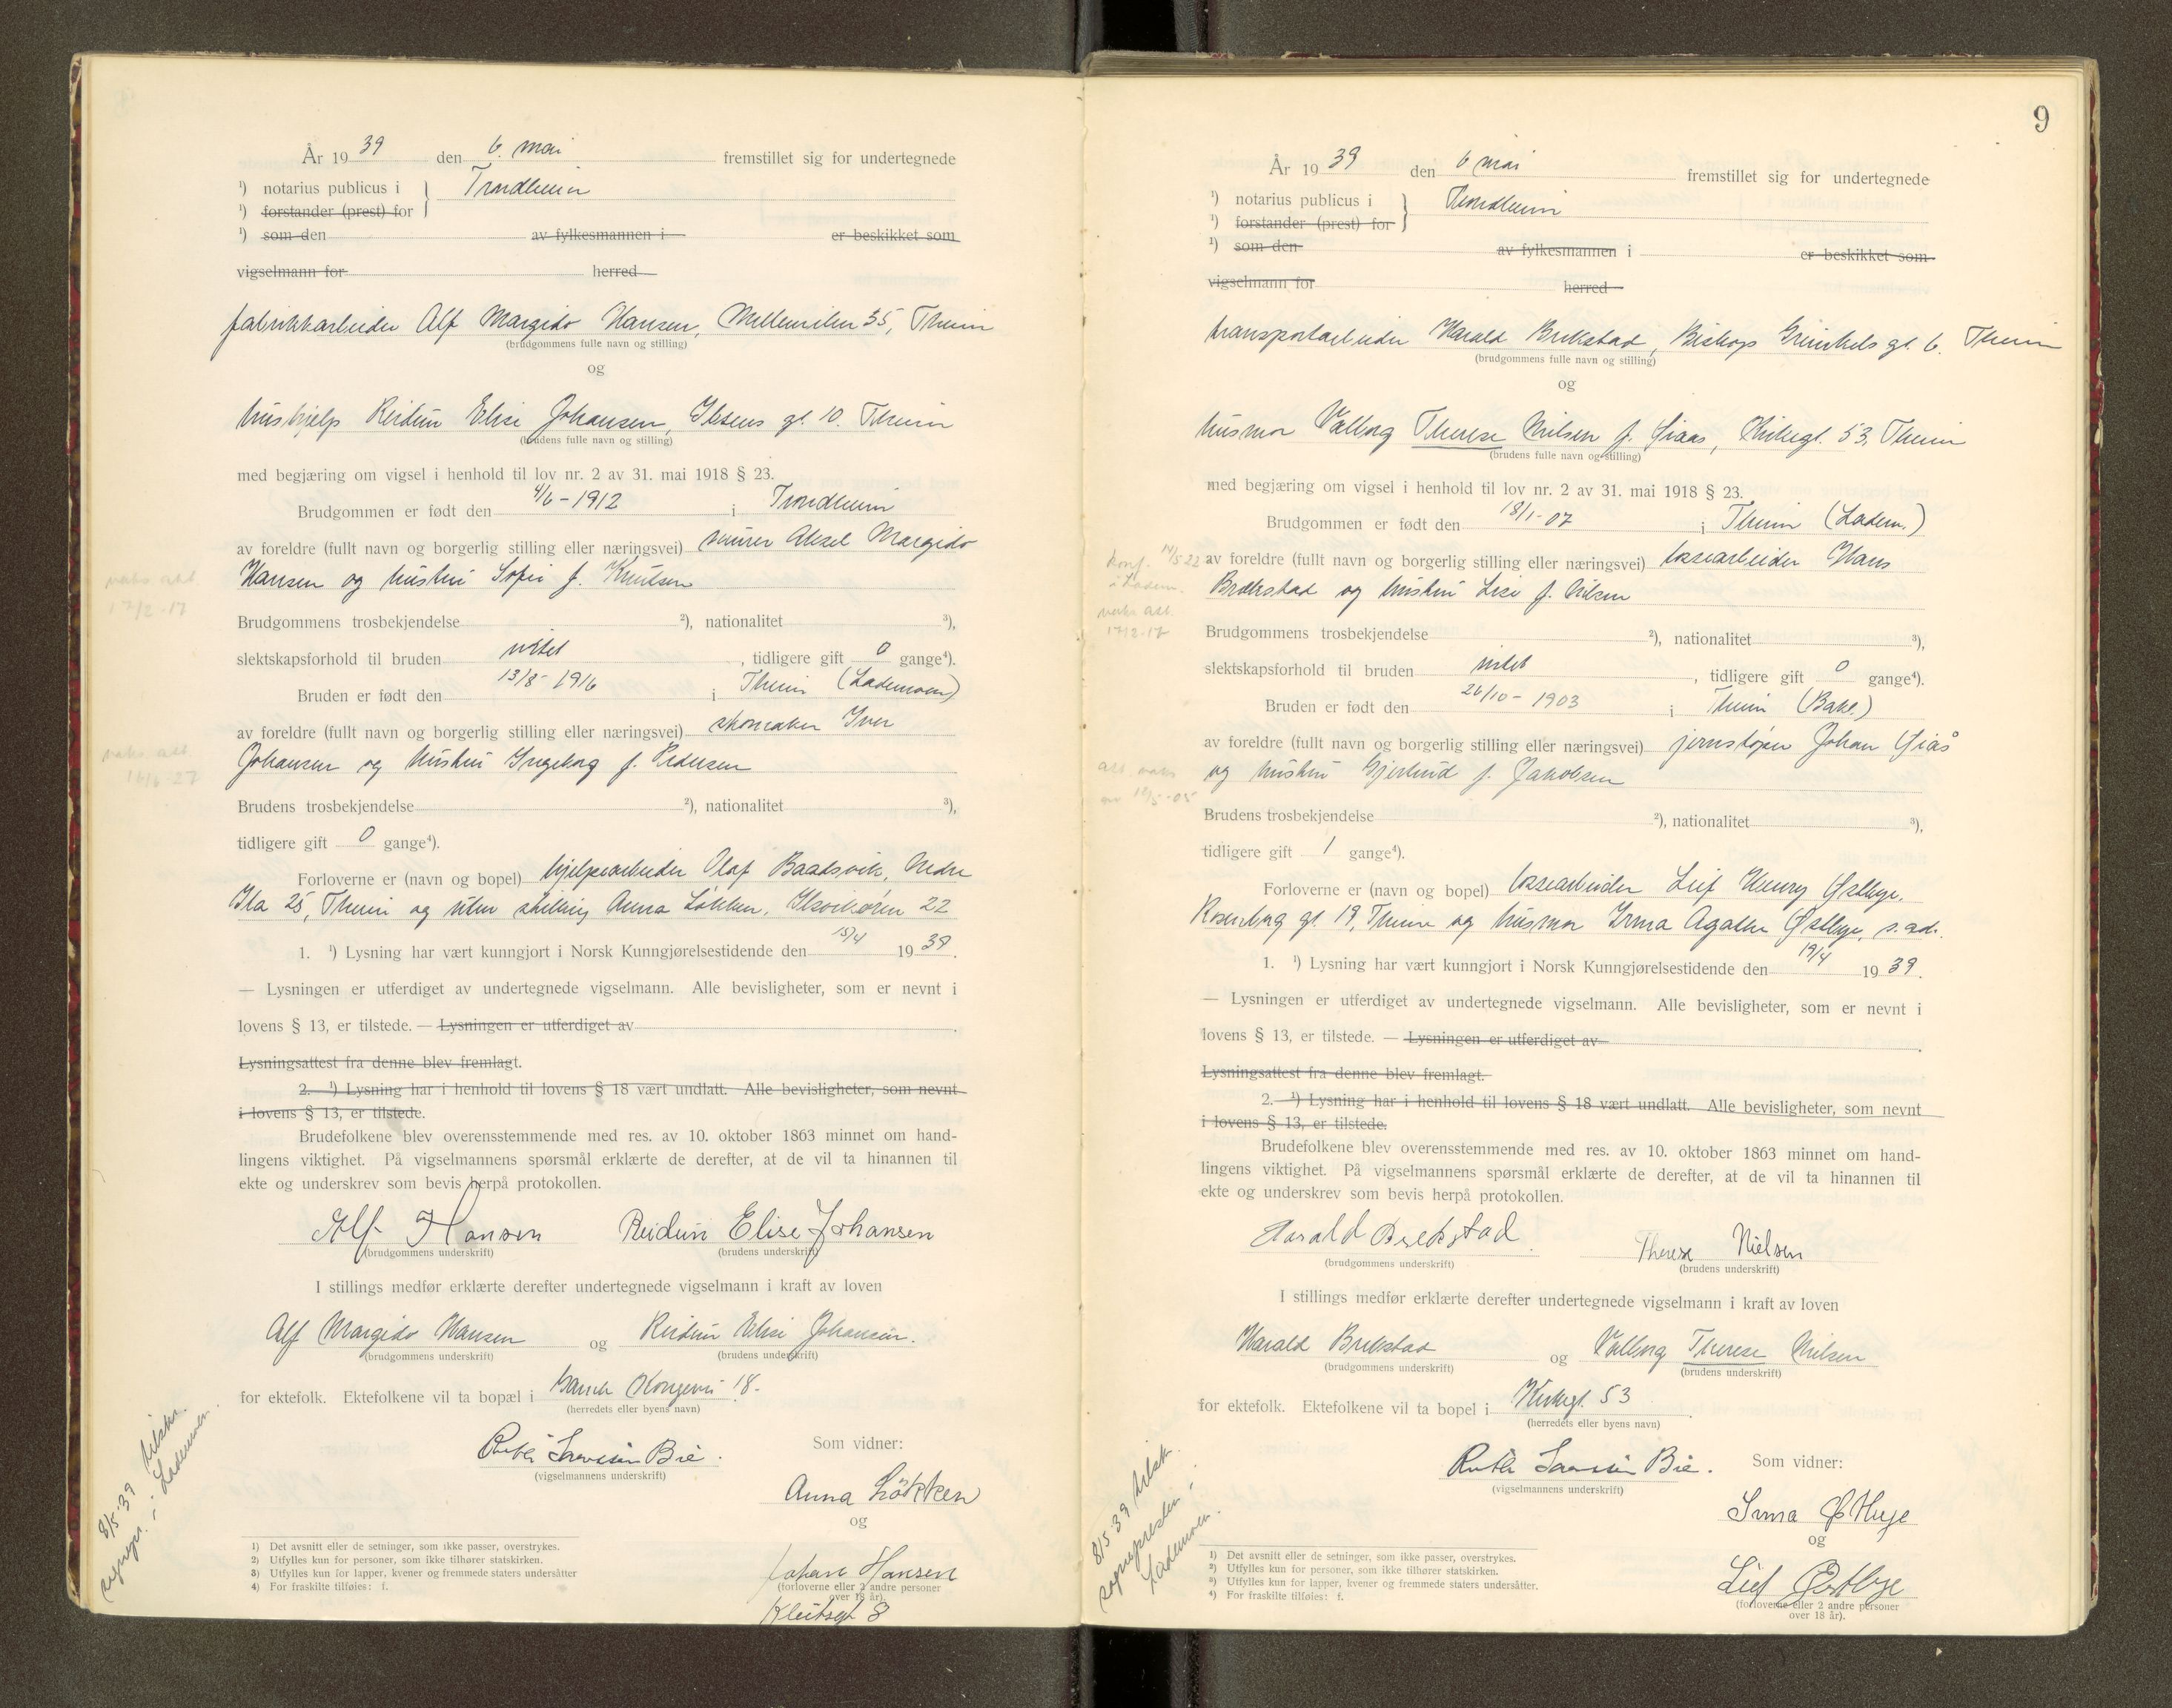 År 1939 den 6. mai fremstillet sig for undertegnede
¹) notarius publicus i } Trondheim
¹) forstander (prest) for
¹) som den av fylkesmannen i er beskikket som
vigselmann for herred
fabrikkarbeider Alf Margido Hansen, Mellemilen 35, Therim
(brudgommens fulle navn og stilling)
og
hushjelp Reidun Elise Johansen, Ibsens gt. 10. Therim
(brudens fulle navn og stilling)
med begjæring om vigsel i henhold til lov nr. 2 av 31. mai 1918 § 23.
Brudgommen er født den 4/6-1912 i Trondheim
av foreldre (fullt navn og borgerlig stilling eller næringsvei) murer Aksel Margido
Hansen og hustru Sofie f. Knutsen
Brudgommens trosbekjendelse ²), nationalitet ³),
slektskapsforhold til bruden intet, tidligere gift 0 gange⁴).
Bruden er født den 13/8-1916 i Therim (Lademoen)
av foreldre (fullt navn og borgerlig stilling eller næringsvei) skomaker Iver
Johansen og hustru Ingeborg f. Pedersen
Brudens trosbekjendelse ²), nationalitet ³),
tidligere gift 0 gange⁴).
Forloverne er (navn og bopel) hjelpearbeider Olaf Baadsvik, Nedre
Ila 25, Therim og uten stilling Anna Løkken, Ilsvikøren 22
1. ¹) Lysning har vært kunngjort i Norsk Kunngjørelsestidende den 15/4 1939.
— Lysningen er utferdiget av undertegnede vigselmann. Alle bevisligheter, som er nevnt i
lovens § 13, er tilstede. — Lysningen er utferdiget av
Lysningsattest fra denne blev fremlagt.
2. ¹) Lysning har i henhold til lovens § 18 vært undlatt. Alle bevisligheter, som nevnt
i lovens § 13, er tilstede.
Brudefolkene blev overensstemmende med res. av 10. oktober 1863 minnet om hand-
lingens viktighet. På vigselmannens spørsmål erklærte de derefter, at de vil ta hinannen til
ekte og underskrev som bevis herpå protokollen.
Alf Hansen Reidun Elise Johansen
(brudgommens underskrift) (brudens underskrift)
I stillings medfør erklærte derefter undertegnede vigselmann i kraft av loven
Alf Margido Hansen og Reidun Elise Johansen.
(brudgommens underskrift) (brudens underskrift)
for ektefolk. Ektefolkene vil ta bopæl i Gamle Kongevei 18.
(herredets eller byens navn)
Ruth Bie.
(vigselmannens underskrift)
Som vidner:
Anna Løkken
og
Johan Hansen
(forloverne eller 2 andre personer
over 18 år).
8
1) Det avsnitt eller de setninger, som ikke passer, overstrykes.
2) Utfylles kun for personer, som ikke tilhører statskirken.
3) Utfylles kun for lapper, kvener og fremmede staters undersåtter
4) For fraskilte tilføies: f.
vaks. att.
17/2-17
vaks. att.
8/5-39 tilskr.
sognepr. i Lademoen.
9
År 1939 den 6 mai fremstillet sig for undertegnede
¹) notarius publicus i } Trondheim
¹) forstander (prest) for
¹) som den av fylkesmannen i er beskikket som
vigselmann for herred
transportarbeider Harald Brekstad, Biskop Grimkels gt. 6. Therim
(brudgommens fulle navn og stilling)
og
husmor Valborg Therese Nilsen f. Giaas, Kirkegt. 53, Therim
(brudens fulle navn og stilling)
med begjæring om vigsel i henhold til lov nr. 2 av 31. mai 1918 § 23.
Brudgommen er født den 18/1-07 i Therim (Ladem.)
av foreldre (fullt navn og borgerlig stilling eller næringsvei) lossearbeider Hans
Brækstad og hustru Lise f. Nilsen
Brudgommens trosbekjendelse ²), nationalitet ³),
slektskapsforhold til bruden intet, tidligere gift 0 gange⁴).
Bruden er født den 26/10-1903 i Therim (Bakl.)
av foreldre (fullt navn og borgerlig stilling eller næringsvei) jernstøper Johan Giås
og hustru Gjertrud f. Jakobsen
Brudens trosbekjendelse ²), nationalitet ³),
tidligere gift 1 gange⁴).
Forloverne er (navn og bopel) lossearbeider Leif Henry Østbye,
Rosenborg gt 19, Therim og husmor Irma Agathe Østbye, s. ad.
1. ¹) Lysning har vært kunngjort i Norsk Kunngjørelsestidende den 19/4 1939.
— Lysningen er utferdiget av undertegnede vigselmann. Alle bevisligheter, som er nevnt i
lovens § 13, er tilstede. — Lysningen er utferdiget av
Lysningsattest fra denne blev fremlagt.
2. ¹) Lysning har i henhold til lovens § 18 vært undlatt. Alle bevisligheter, som nevnt
i lovens § 13, er tilstede.
Brudefolkene blev overensstemmende med res. av 10. oktober 1863 minnet om hand-
lingens viktighet. På vigselmannens spørsmål erklærte de derefter, at de vil ta hinannen til
ekte og underskrev som bevis herpå protokollen.
Harald Brekstad Therese Nielsen
(brudgommens underskrift) (brudens underskrift)
I stillings medfør erklærte derefter undertegnede vigselmann i kraft av loven
Harald Brekstad og Valborg Therese Nilsen
(brudgommens underskrift) (brudens underskrift)
for ektefolk. Ektefolkene vil ta bopel i Kirkegt. 53
(herredets eller byens navn)
Ruth Bie.
(vigselmannens underskrift)
Som vidner:
Irma Østbye
og
Leif Østbye
(forloverne eller 2 andre personer
over 18 år).
1) Det avsnitt eller de setninger, som ikke passer, overstrykes.
2) Utfylles kun for personer, som ikke tilhører statskirken.
3) Utfylles kun for lapper, kvener og fremmede staters undersåtter.
4) For fraskilte tilføies: f.
konf. 14/5 22
i Ladem.
vaks att.
17/2-17
att. vaks
8/5-39 tilskr.
sognepresten i
Lademoen.